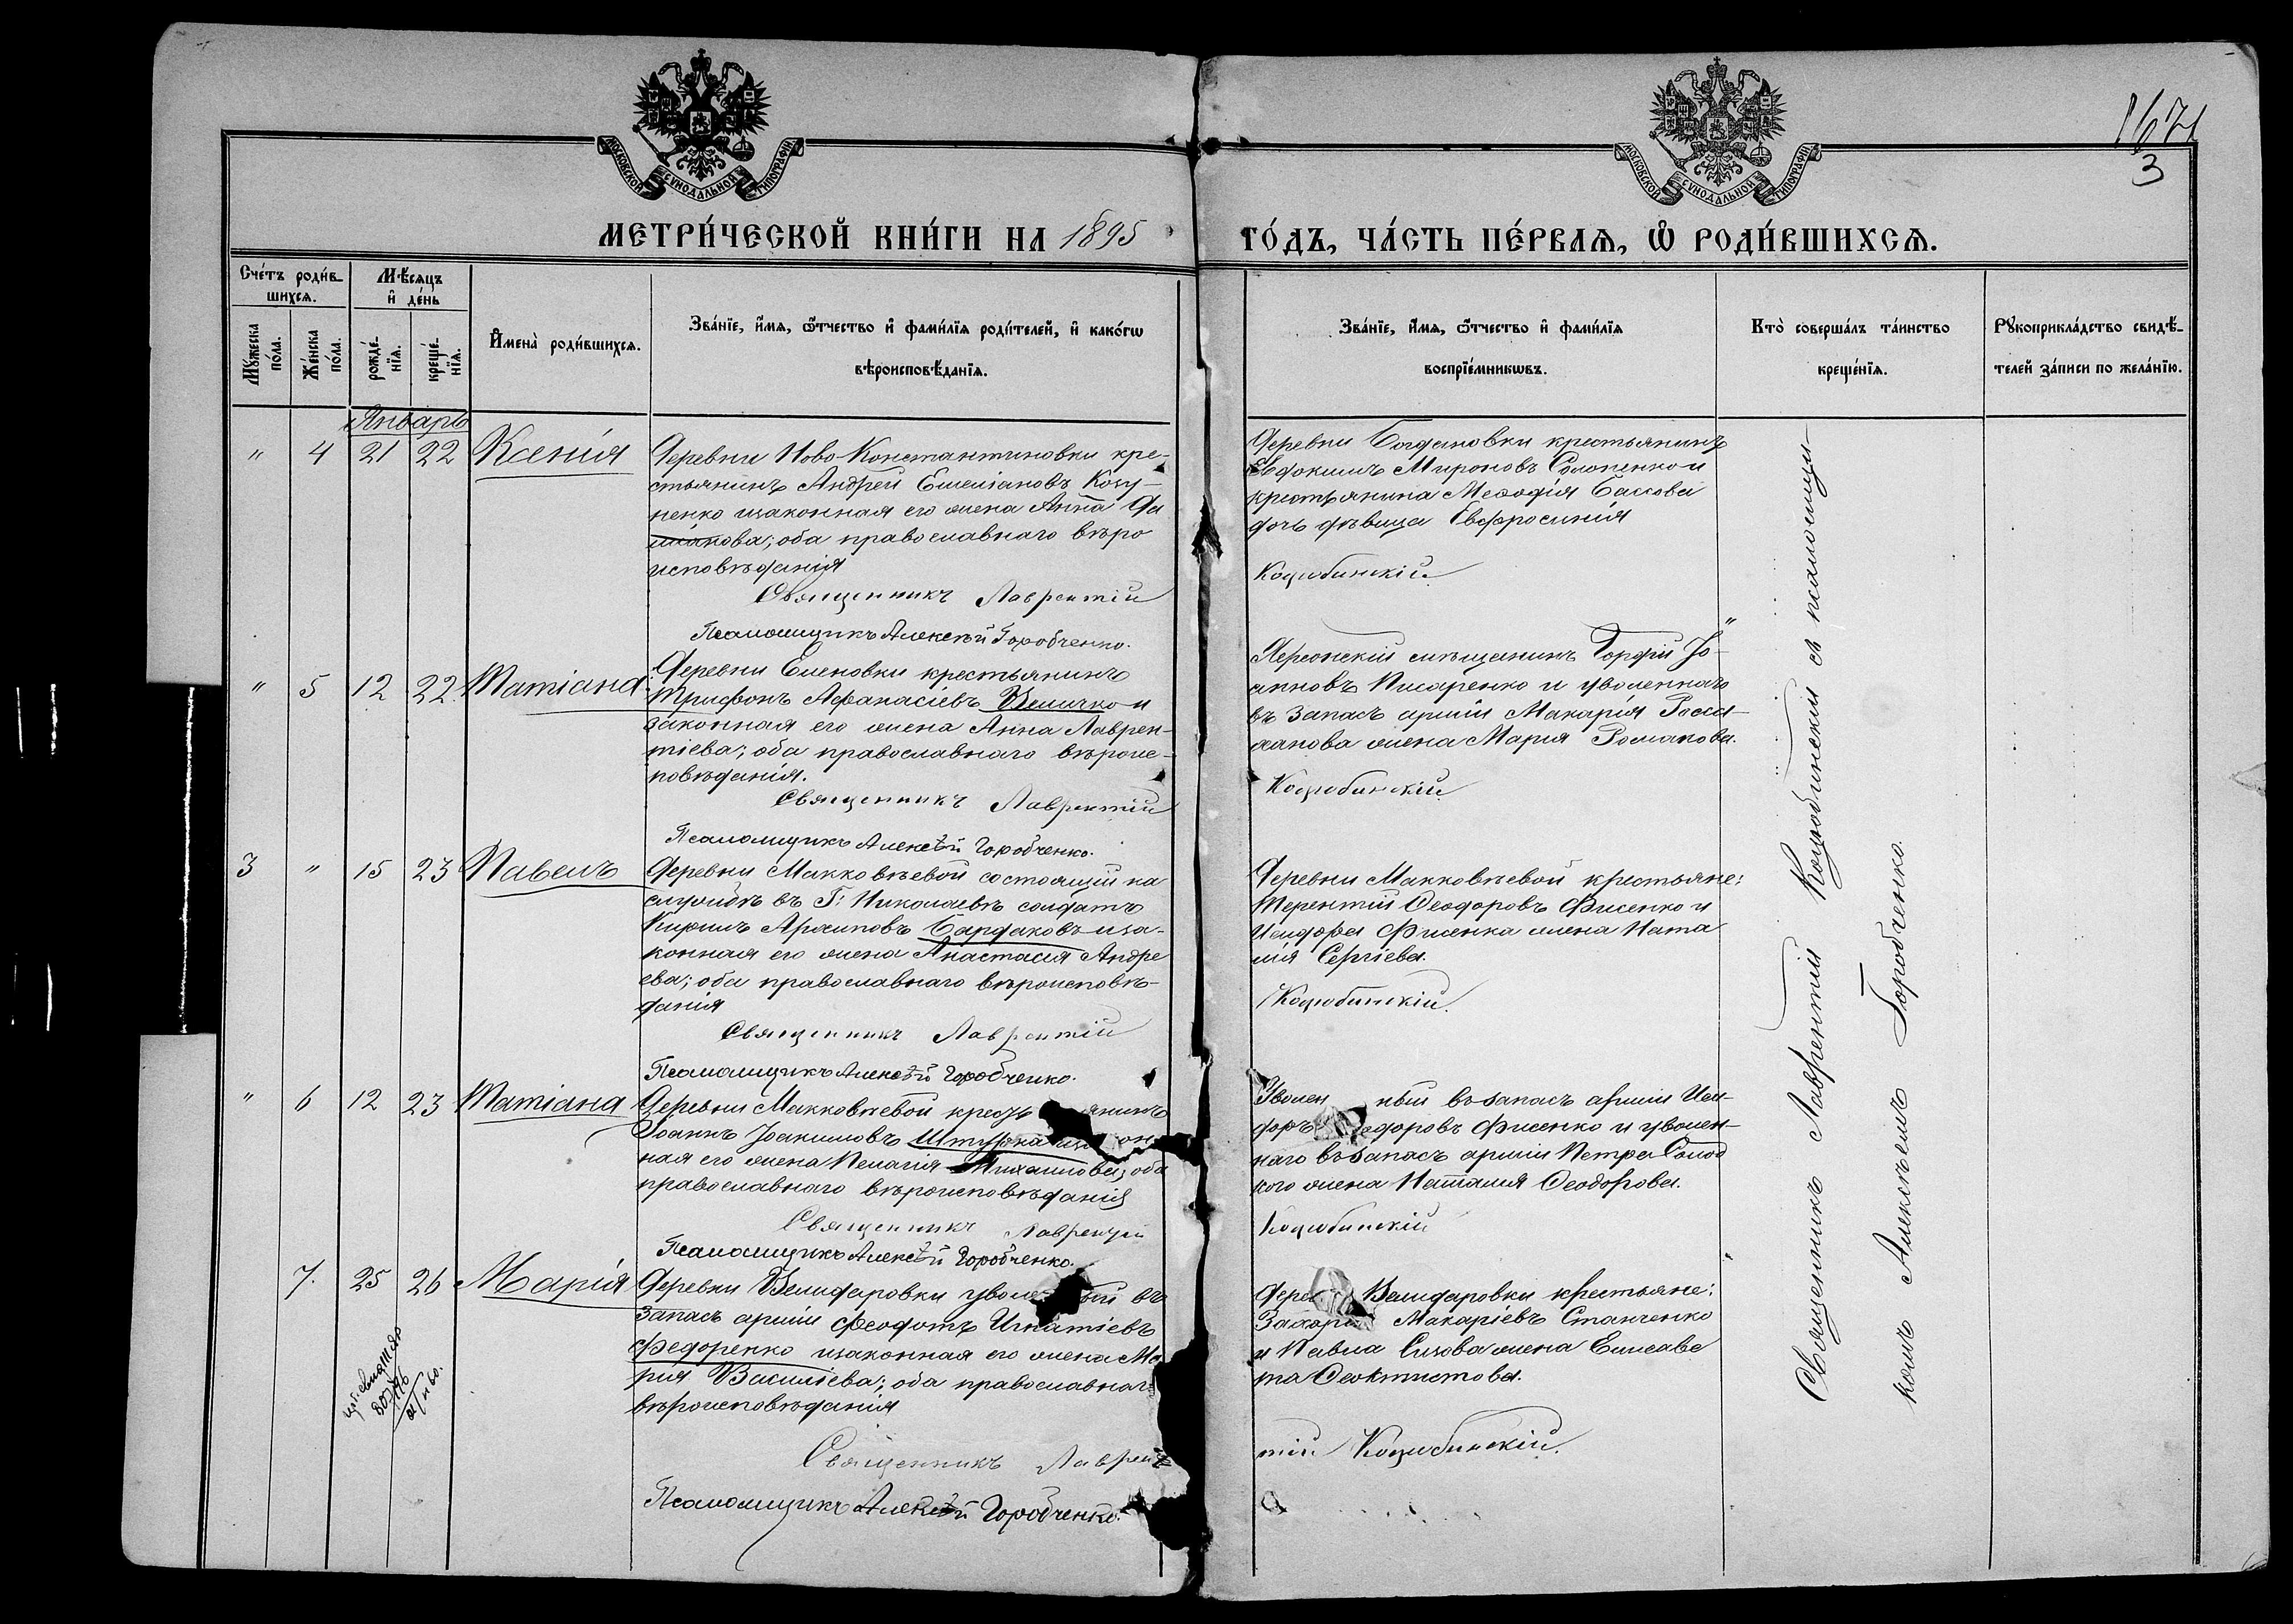 МОСКОВСКОЙ СУНОДАЛЬНОЙ ТИПОГРАФІИ
МОСКОВСКОЙ СУНОДАЛЬНОЙ ТИПОГРАФІИ
3
МЕТРИ́ЧЕСКОЙ КНИ́ГИ НА 1895
ГО́ДЪ, ЧА́СТЬ ПЕ́РВАѦ, Ѽ РОДИ́ВШИХСѦ.
Сче́тъ роди́в-
шихсѧ.
Мѣ́сѧцъ
и҆ де́нь
Мꙋжеска
по́ла.
Же́нска
по́ла.
рожде́-
нїѧ.
креще́-
нїѧ.
И҆мена̀ роди́вшихсѧ.
Зва́нїе, и҆́мѧ, ѿ́чество и҆ фами́лїѧ роди́телей, и҆ како́гѡ
вѣроисповѣ́данїѧ.
Зва́нїе, и҆́мѧ, ѿ́чество и҆ фами́лїѧ
воспрїе́мникѡвъ.
Кто̀ соверша́лъ та́инство
креще́нїѧ.
Рꙋкоприкла́дство свидѣ́-
телей за́писи по жела́нїю.
Январь
" 4 21 22 Ксенія
Деревни Ново-Константиновки кре-
стьянинъ Андрей Емеліановъ Козу-
ненко изаконная его жена Анна Да
міанова; оба православнаго вѣро
исповѣданія
Священникъ Лаврентій
Псаломщикъ Алексѣй Горобченко.
Деревни Богдановки крестьянинъ
Евдокимъ Мироновъ Соломенко и
крестьянина Меѳодія Баскова
дочь дѣвица Евфросинія
Коцюбинскій
" 5 12 22. Татіана
Деревни Еленовки крестьянинъ
Трифонъ Аѳанасіевъ Величко и
законная его жена Анна Лаврен-
тіева; оба православнаго вѣроис-
повѣданія.
Священникъ Лаврентій
Псаломщикъ Алексѣй Горобченко.
Херсонскій мѣщанинъ Гордій Іо-
анновъ Писаренко и уволеннаго
въ запасъ арміи Макарія
жена Марія Романова.
Коцюбинскій
3 " 15 23 Павелъ
Деревни Макковѣевой состоящій на
службѣ въ Г. Николаевѣ солдатъ
Кирилъ Архиповъ Бардаковъ иза-
конная его жена Анастасія Андре
ева; оба православнаго вѣроисповѣ-
данія
Священникъ Лаврентій
Псаломщикъ Алексѣй Горобченко.
Деревни Макковѣевой крестьяне:
Терентій Ѳеодоровъ Фисенко и
Исидора Фисенка жена Ната
лія Сергіева.
Коцюбинскій.
" 6 12 23 Татіана
Деревни Макковѣевой крестьянинъ
Іоаннъ Іоакимовъ Штурка
ная его жена Пелагія Михаилова; оба
православнаго вѣроисповѣданія
Священникъ Лаврентій
Псаломщикъ Алексѣй Горобченко.
Уволенный въ запасъ арміи Иси-
доръ Ѳеодоровъ Фисенко и уволен-
наго въ запасъ арміи Петра Солод
кого жена Наталія Ѳеодорова.
Коцюбинскій
7. 25 26 Марія
Деревни Велидаровки уволенный въ
запасъ арміи Феодотъ Игнатіевъ
Федоренко изаконная его жена Ма
рія Василіева; оба православнаго
вѣроисповѣданія
Священникъ Лаврен
Псаломщикъ Алексѣй Горобченко.
Дере Велидаровки крестьяне:
Захарій Макаріевъ Станченко
и Павла Сизова жена Елисаве
та Ѳеоктистова.
тій Коцюбинскій.
Священникъ Лаврентій Коцюбинскій съ псаломщи-
комъ Алексѣемъ Горобченко.